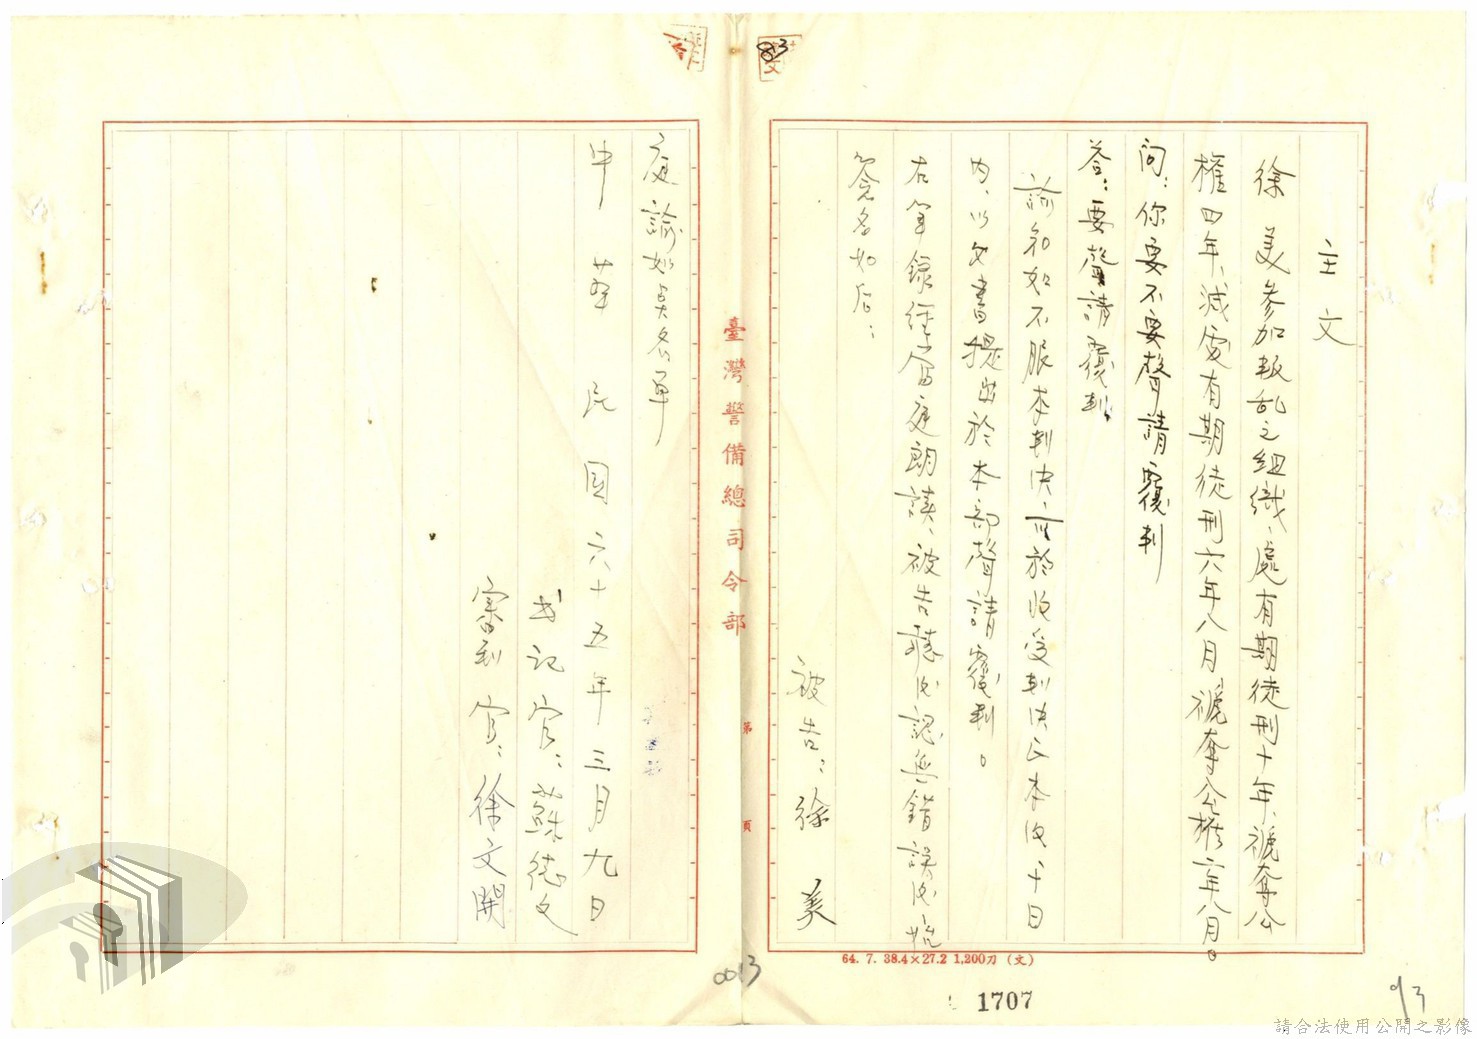 83
主文
徐 美參加叛乱之組織、處有期徒刑十年、褫奪公
權四年、減處有期徒刑六年八月褫奪公權二年八月。
問：你要不要聲請覆判
答：要聲請覆判
諭知如不服本判決、應於收受判決正本後十日
內、以文書提出於本部聲請覆判。
右筆錄經當庭朗讀、被告聽後認無錯誤後
簽名如后：
被告：徐 美
臺灣警備總司令部
第 頁
庭諭如吳名單
中華民國六十五年三月九日
書記官：蘇德文
審判官：徐文開
64. 7. 38.4×27.2 1,200刀（文）
0013
1707
93
請合法使用公開之影像